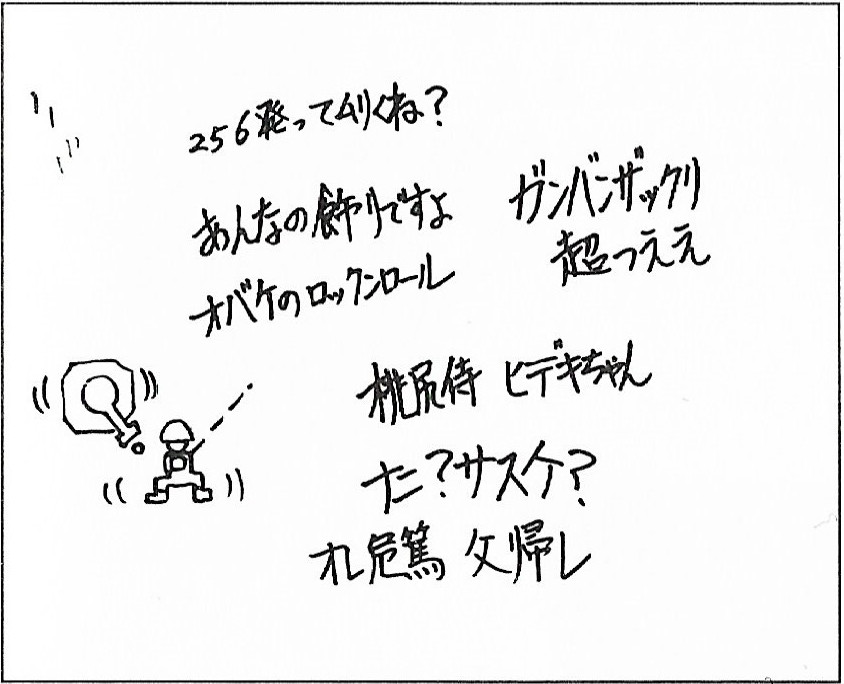 256発ってムリくね？
あんなの飾りですよ
オバケのロックンロール
ガンバンザックリ
超つええ
桃尻侍 ヒデキちゃん
た？サスケ？
オレ危篤 父帰レ